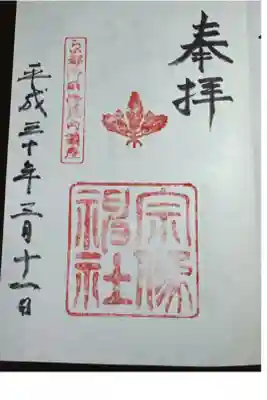 奉拝
宗像神社
平成三十年三月十一日